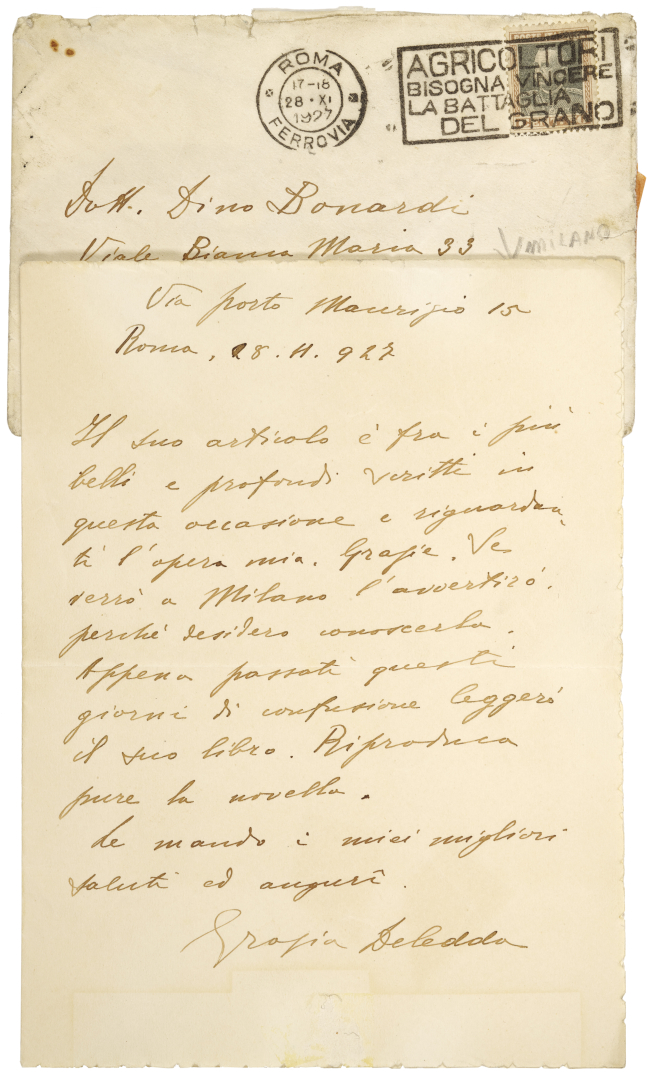 ROMA
17-18
28·XI
1927
FERROVIA
AGRICOLTORI
BISOGNA VINCERE
LA BATTAGLIA
DEL GRANO
Dott. Dino Bonardi
Viale Bianca Maria 33
MILANO
Via porto Maurizio 15
Roma, 28. 11. 927
Il suo articolo è fra i più
belli e profondi scritti in
questa occasione e riguardan-
ti l'opera mia. Grazie. Se
verrò a Milano l'avvertirò,
perché desidero conoscerla.
Appena passati questi
giorni di confusione leggerò
il suo libro. Riproduca
pure la novella.
Le mando i miei migliori
saluti ed auguri.
Grazia Deledda